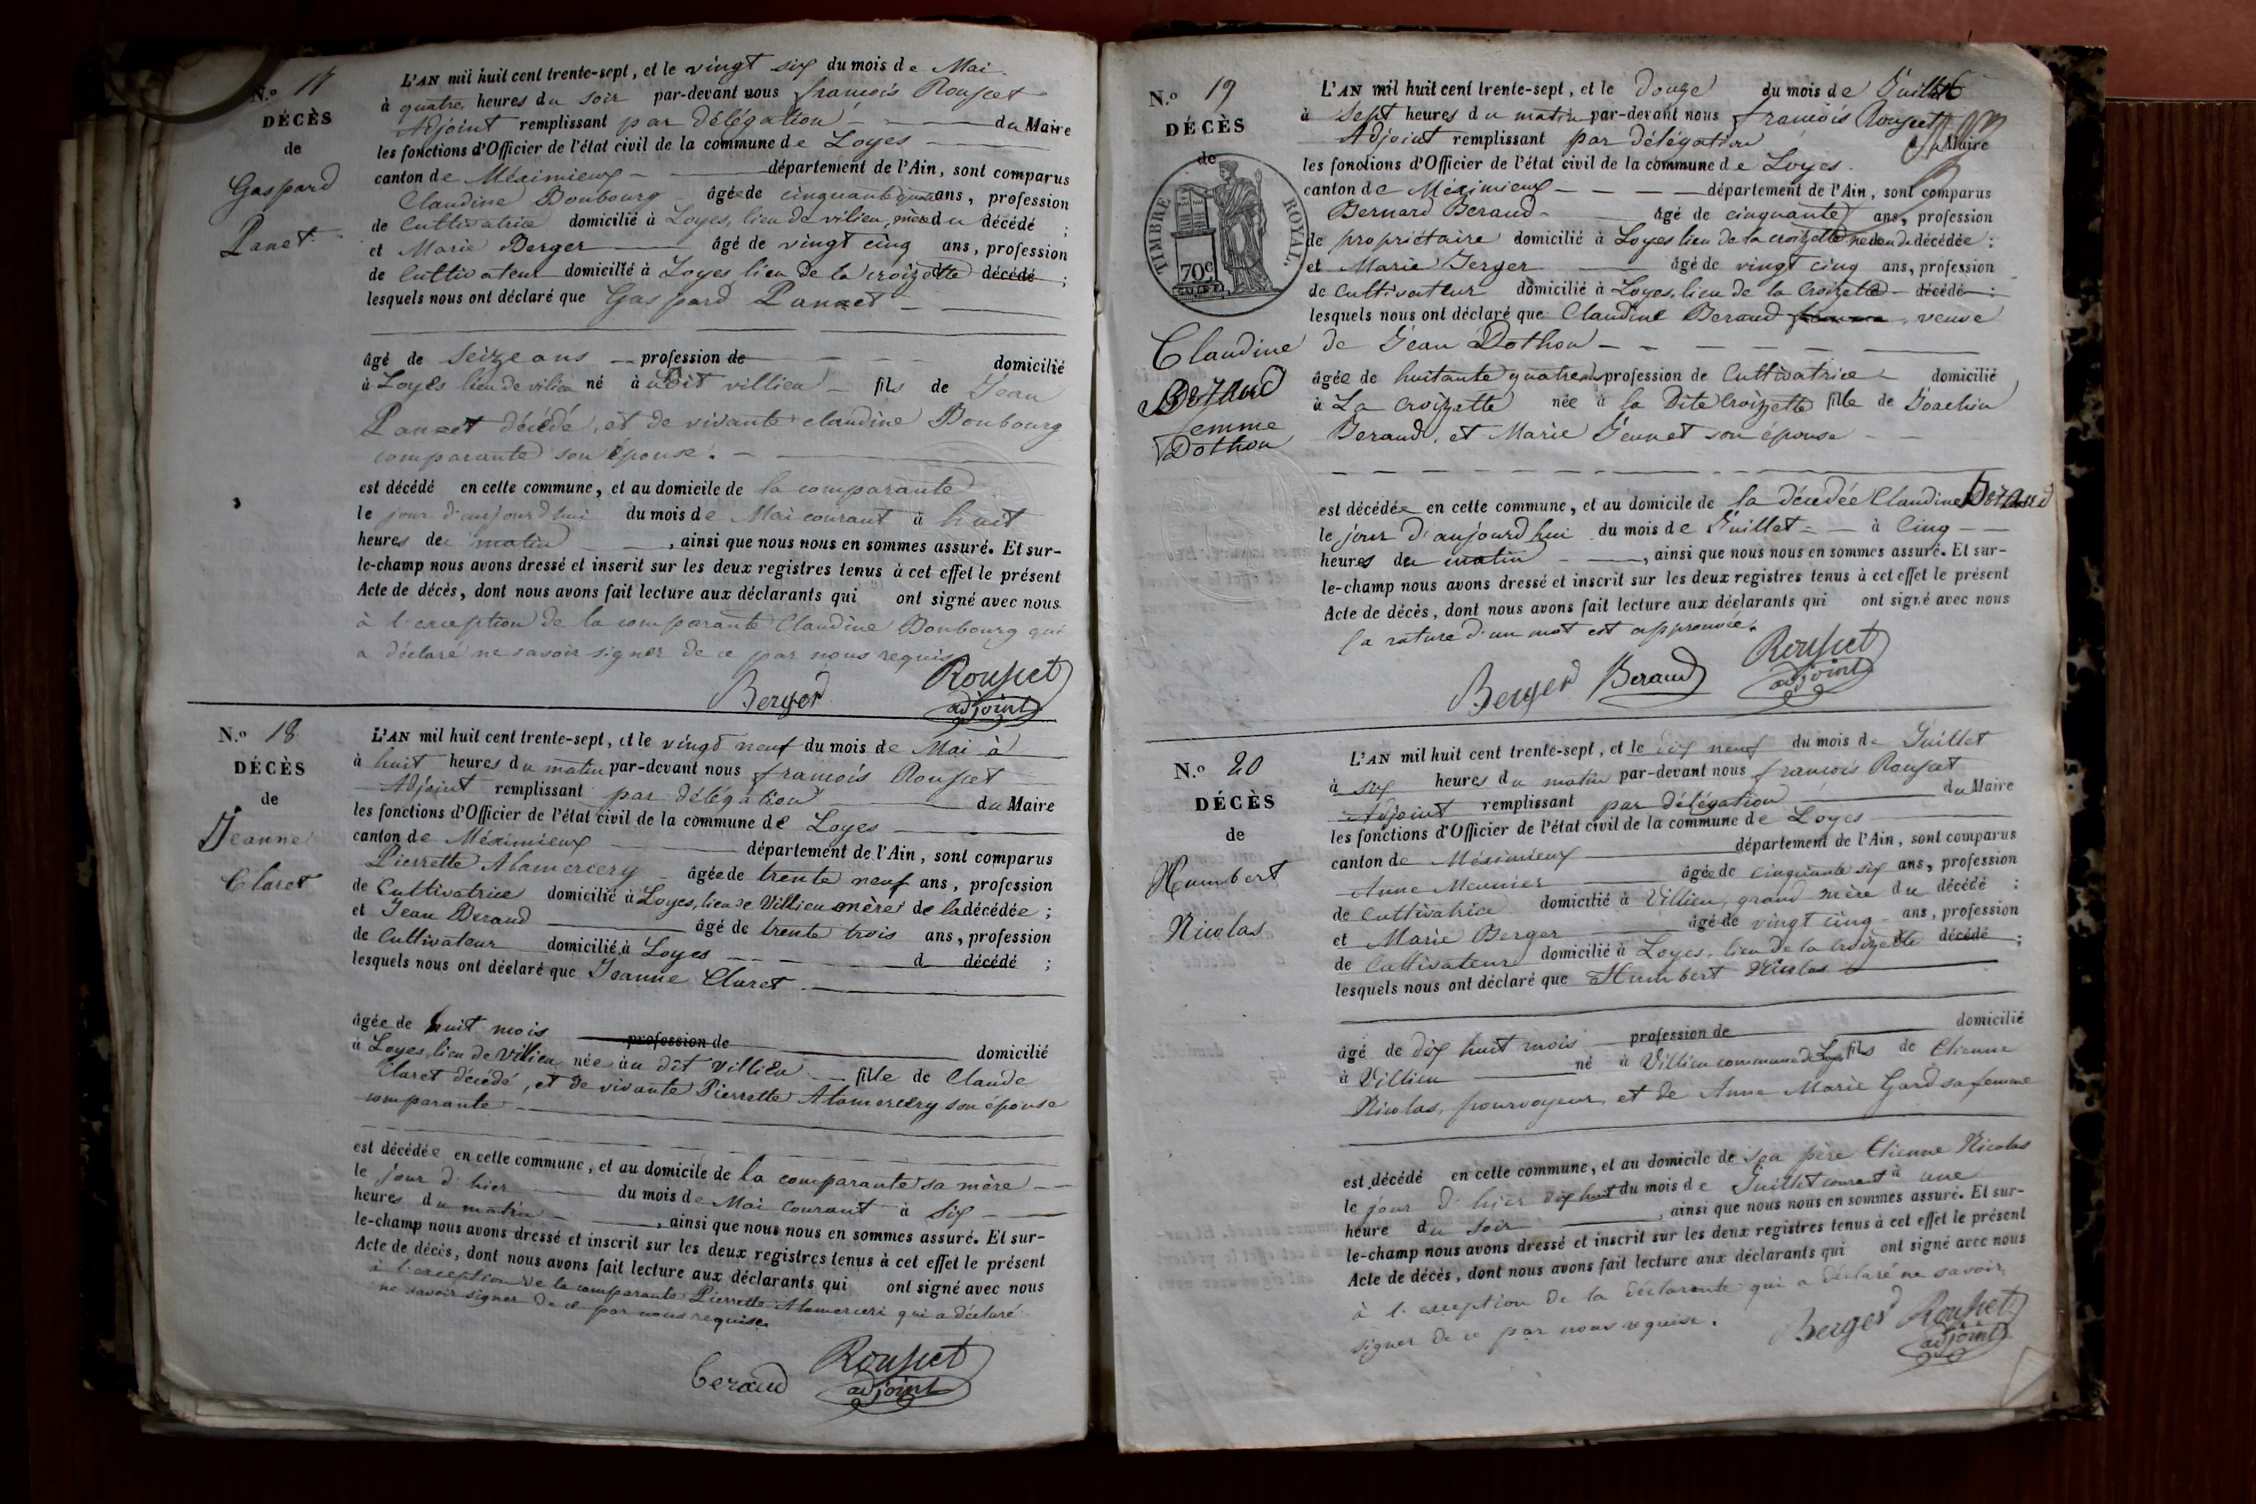 N.º 17
DÉCÈS
de
Gaspard
Panet
L'AN mil huit cent trente-sept, et le vingt six du mois de Mai
à quatre heures du soir par-devant nous françois Rousset
Adjoint remplissant par délégation du Maire
les fonctions d'Officier de l'état civil de la commune de Loyes
canton de Méximieux département de l'Ain, sont comparus
Claudine Bonbourg âgée de cinquante ans, profession
de Cultivatrice domicilié à Loyes, lieu de vilieu, mère du décédé ;
et Marie Berger âgé de vingt cinq ans, profession
de Cultivateur domicilié à Loyes lieu de la croizette décédé ;
lesquels nous ont déclaré que Gaspard Pannet
âgé de Seize ans profession de domicilié
à Loyes lieu de vilieu né à udit villieu fils de Jean
Panet décédé, et de vivante claudine Bonbourg
comparante son épouse.
est décédé en cette commune, et au domicile de la comparante
le jour d'aujourd'hui du mois de Mai courant à huit
heures de matin, ainsi que nous nous en sommes assuré. Et sur-
le-champ nous avons dressé et inscrit sur les deux registres tenus à cet effet le présent
Acte de décès, dont nous avons fait lecture aux déclarants qui ont signé avec nous
à l'exception de la comparante Claudine Bonbourg qui
a déclaré ne savoir signer de ce par nous requis
Berger Rousset
adjoint
N.º 18
DÉCÈS
de
Jeanne
Claret
L'AN mil huit cent trente-sept, et le vingt neuf du mois de Mai à
à huit heures du matin par-devant nous françois Rousset
Adjoint remplissant par délégation du Maire
les fonctions d'Officier de l'état civil de la commune de Loyes
canton de Méximieux département de l'Ain, sont comparus
Pierrette Alamercery âgée de trente neuf ans, profession
de Cultivatrice domicilié à Loyes, lieu de Villieu mère de la décédée ;
et Jean Beraud âgé de trente trois ans, profession
de Cultivateur domicilié à Loyes d décédé ;
lesquels nous ont déclaré que Jeanne Claret
âgée de huit mois profession de domicilié
à Loyes, lieu de Vilieu née au dit Villieu fille de Claude
Claret décédé, et de vivante Pierrette Alamercery son épouse
comparante
est décédée en cette commune, et au domicile de la comparante sa mère
le jour d'hier du mois de Mai courant à six
heures du matin, ainsi que nous nous en sommes assuré. Et sur-
le-champ nous avons dressé et inscrit sur les deux registres tenus à cet effet le présent
Acte de décès, dont nous avons fait lecture aux déclarants qui ont signé avec nous
à l'exception de la comparante Pierrette Alamerceri qui a déclaré
ne savoir signer de ce par nous requise
beraud Rousset
adjoint
N.º 19
DÉCÈS
de
TIMBRE ROYAL.
70c
Claudine
Beraud
femme
Dothon
L'AN mil huit cent trente-sept, et le douze du mois de Juillet
à Sept heures du matin par-devant nous françois Rousset
Adjoint remplissant par délégation du Maire
les fonctions d'Officier de l'état civil de la commune de Loyes.
canton de Méximieux département de l'Ain, sont comparus
Bernard Beraud âgé de cinquante ans, profession
de propriétaire domicilié à Loyes lieu de la croizette neveu de décédée ;
et Marie Berger âgé de vingt cinq ans, profession
de Cultivateur domicilié à Loyes, lieu de la Croizette décédé ;
lesquels nous ont déclaré que Claudine Beraud femme veuve
de Jean Dothon
âgée de huitante quatre ans profession de Cultivatrice domicilié
à La Croizette née à la Dite Croizette fille de Joachin
Beraud, et Marie Jeunet son épouse
est décédée en cette commune, et au domicile de la décédée Claudine Beraud
le jour d'aujourd'hui du mois de Juillet à Cinq
heures du matin, ainsi que nous nous en sommes assuré. Et sur-
le-champ nous avons dressé et inscrit sur les deux registres tenus à cet effet le présent
Acte de décès, dont nous avons fait lecture aux déclarants qui ont signé avec nous
la rature d'un mot est approuvée.
Berger Beraud Rousset
adjoint
N.º 20
DÉCÈS
de
Humbert
Nicolas
L'AN mil huit cent trente-sept, et le dix neuf du mois de Juillet
à six heures du matin par-devant nous françois Rousset
Adjoint remplissant par délégation du Maire
les fonctions d'Officier de l'état civil de la commune de Loyes
canton de Méximieux département de l'Ain, sont comparus
Anne Meunier âgée de cinquante six ans, profession
de Cultivatrice domicilié à Villieu, grand mère du décédé ;
et Marie Berger âgé de vingt cinq ans, profession
de Cultivateur domicilié à Loyes, lieu de la Croizette décédé ;
lesquels nous ont déclaré que Humbert Nicolas
âgé de dix huit mois profession de domicilié
à Villieu né à Villieu commune de Loyes fils de Etienne
Nicolas, pourvoyeur, et de Anne Marie Gard sa femme
est décédé en cette commune, et au domicile de son père Etienne Nicolas
le jour d'hier dix huit du mois de Juillet courant à une
heure du soir, ainsi que nous nous en sommes assuré. Et sur-
le-champ nous avons dressé et inscrit sur les deux registres tenus à cet effet le présent
Acte de décès, dont nous avons fait lecture aux déclarants qui ont signé avec nous
à l'exception de la déclarante qui a déclaré ne savoir
signer de ce par nous requise.
Berger Rousset
adjoint